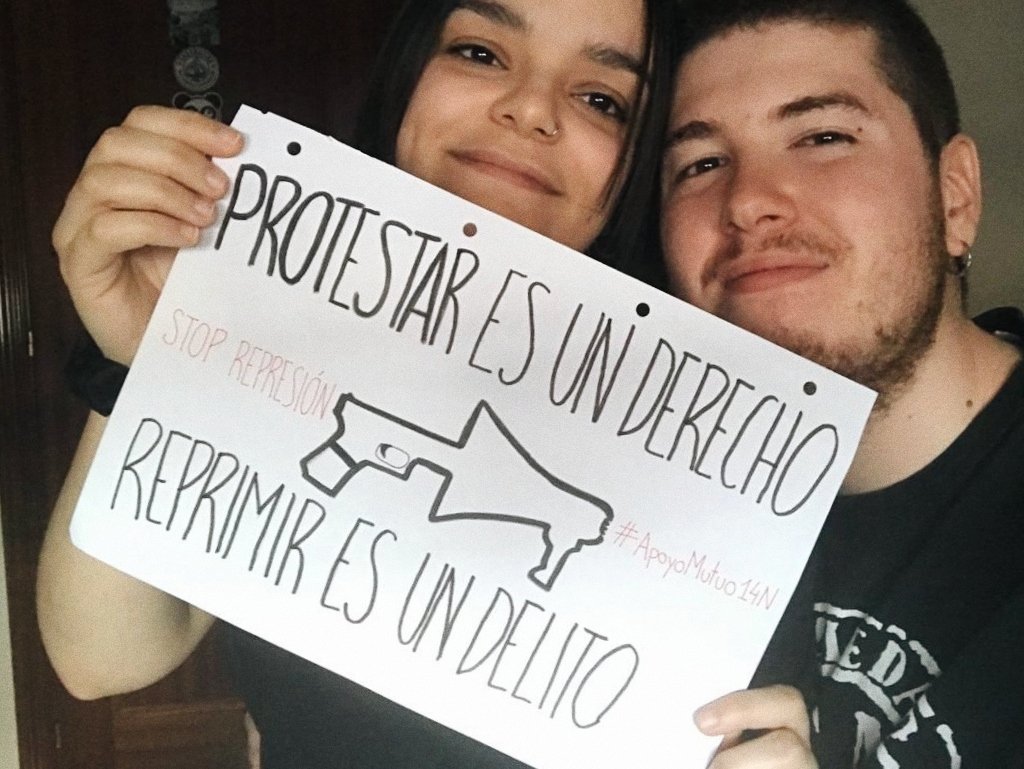 PROTESTAR ES UN DERECHO
STOP REPRESIÓN
#ApoyoMutuo14N
REPRIMIR ES UN DELITO